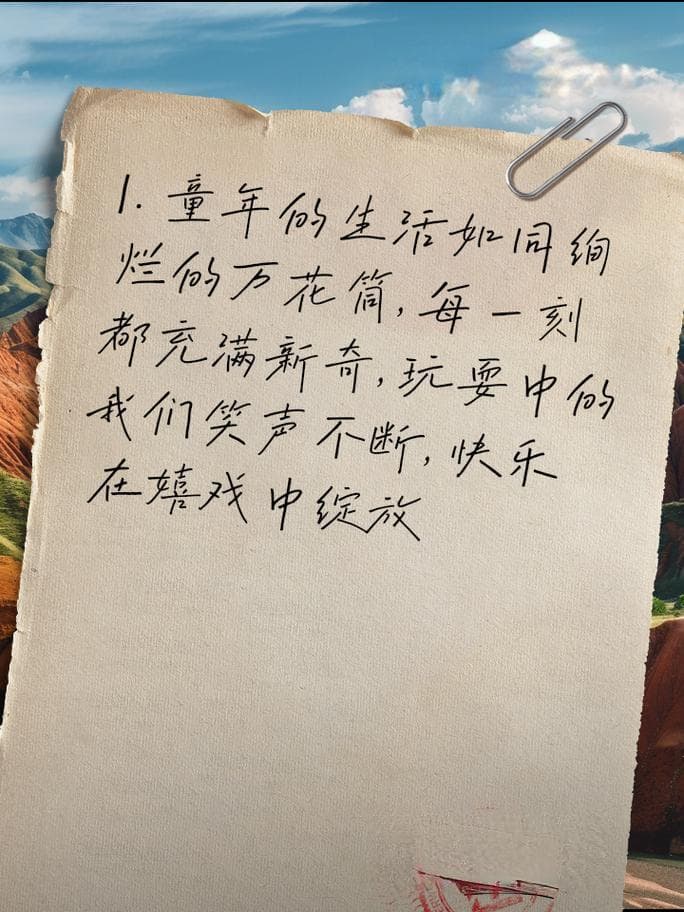 1. 童年的生活如同绚
烂的万花筒,每一刻
都充满新奇,玩耍中的
我们笑声不断,快乐
在嬉戏中绽放